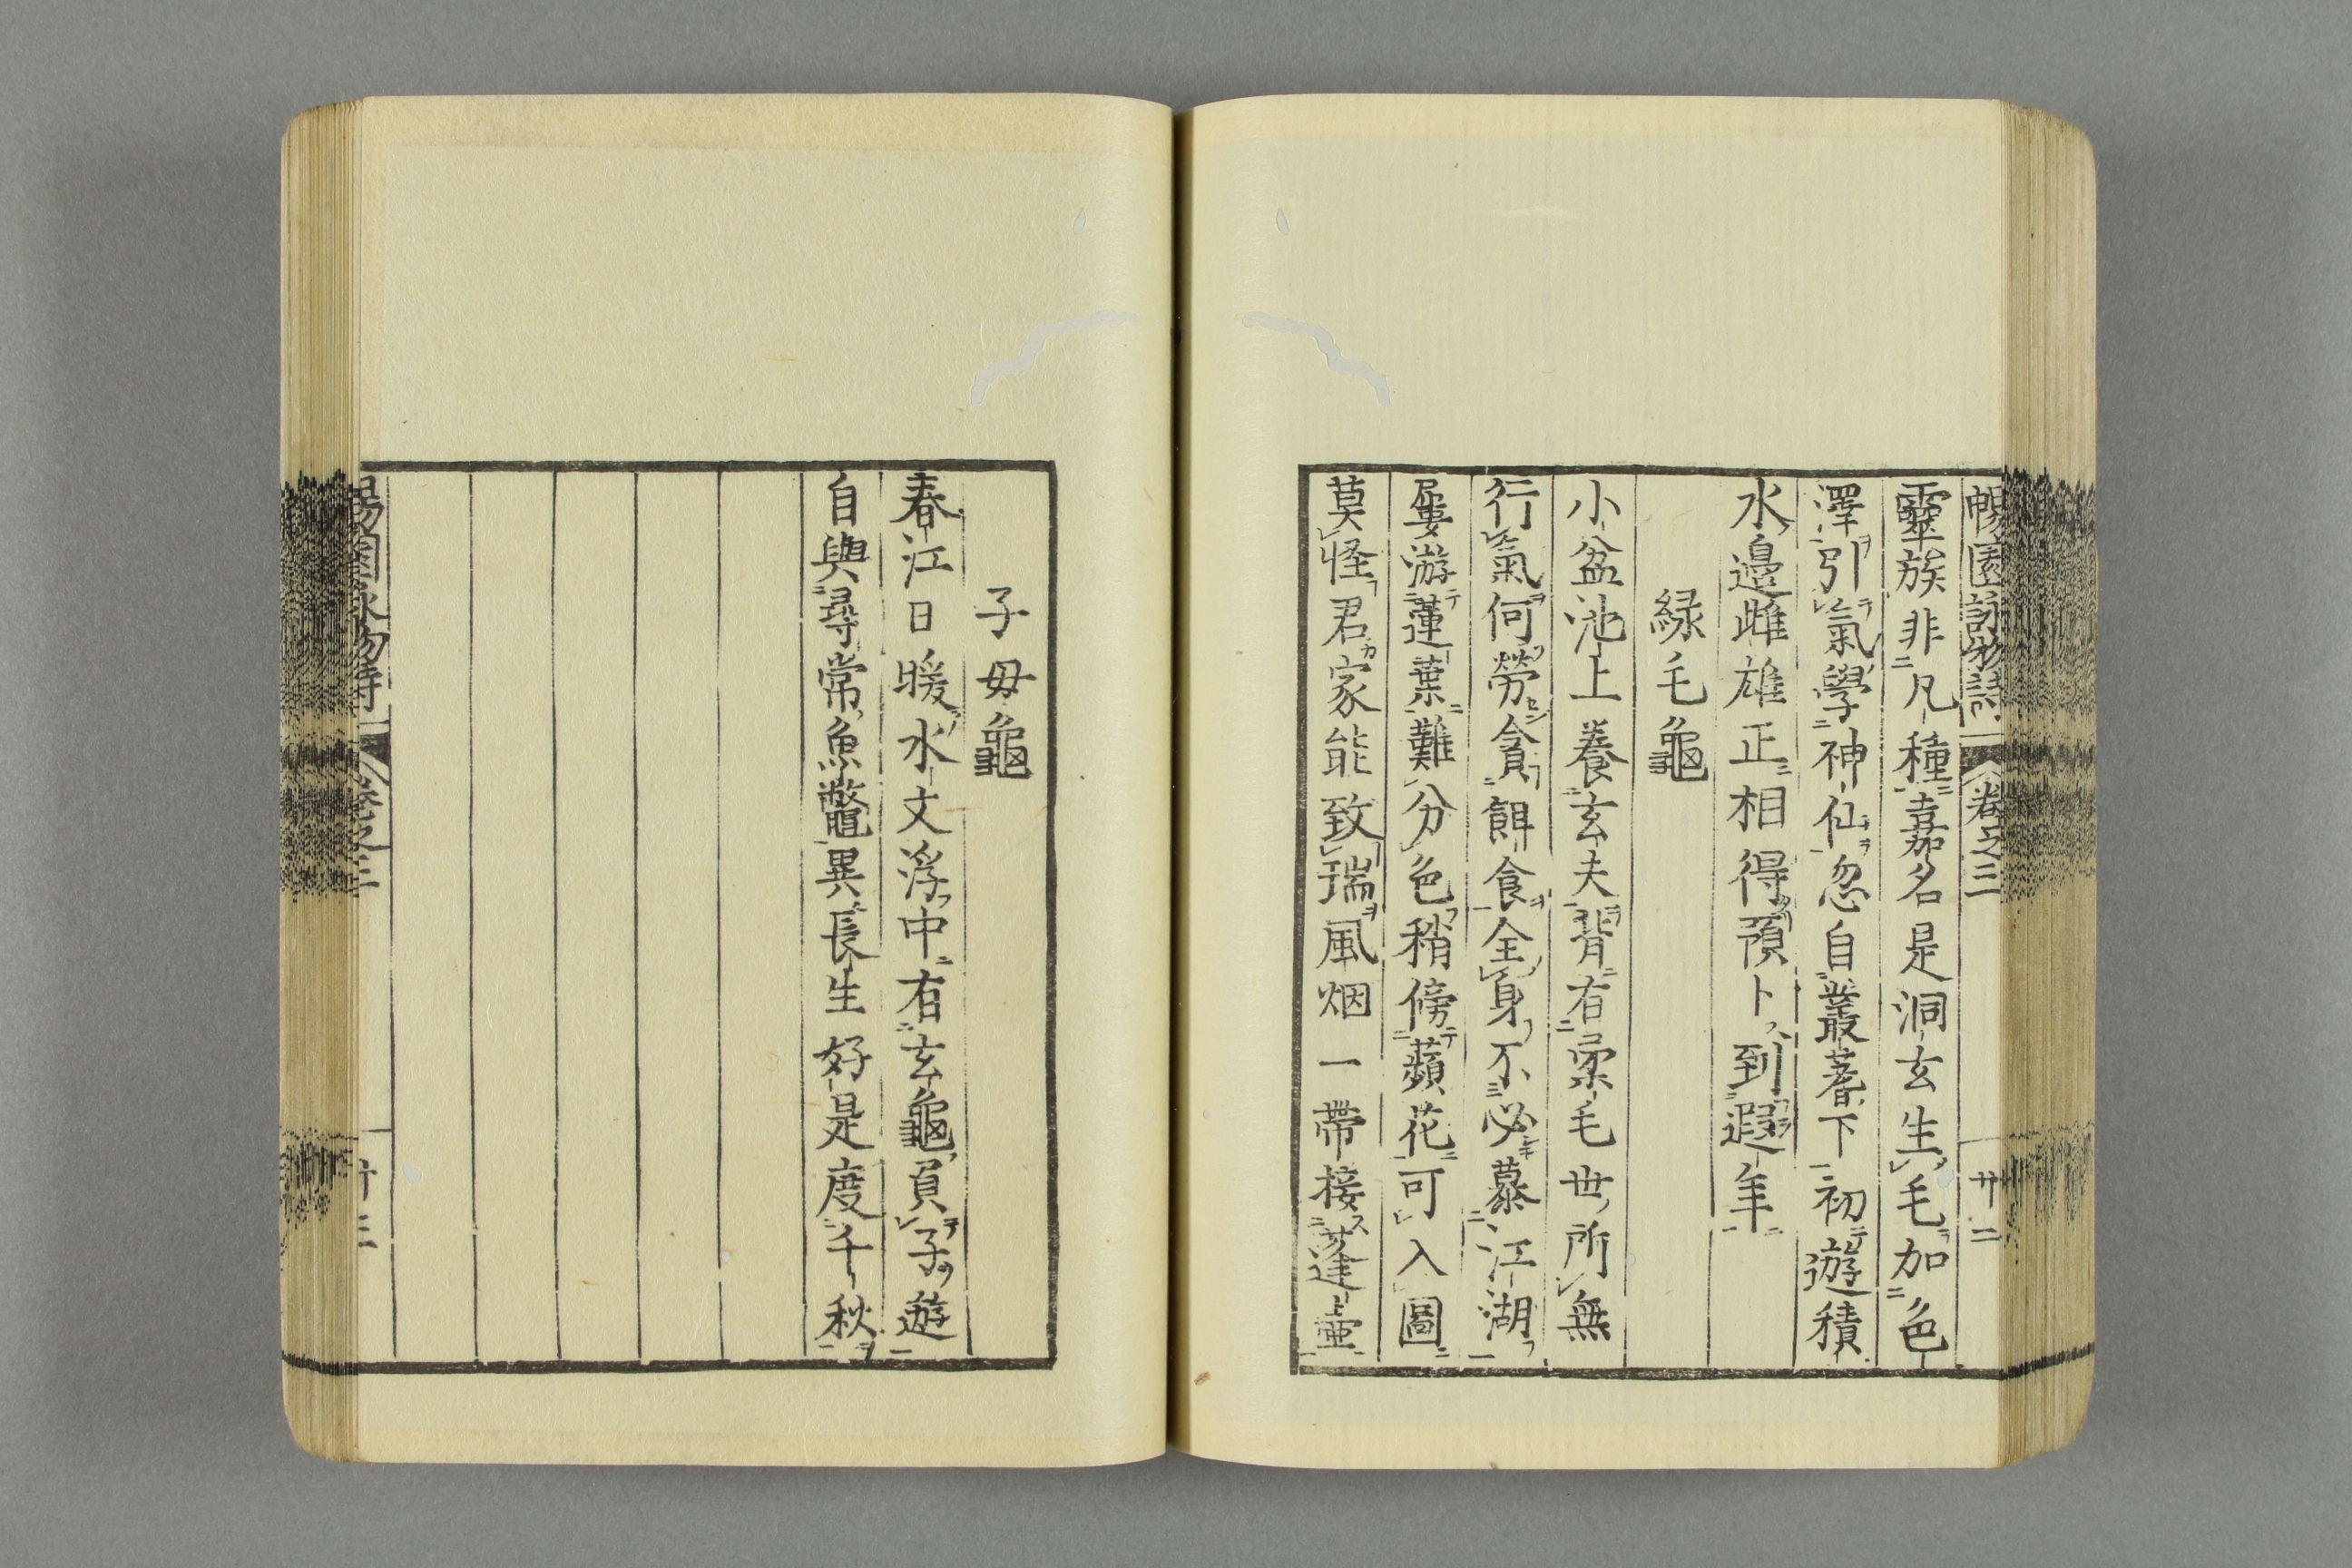 暢園詠物詩 卷之三 廿二
靈族非凡種嘉名是洞玄生毛加色
澤引氣學神仙忽自叢蓍下初遊積
水邊雌雄正相得預卜到遐年
緑毛龜
小盆池上養玄夫背有柔毛世所無
行氣何勞貪餌食全身不必慕江湖
屢游蓮葉難分色稍傍蘋花可入圖
莫怪君家能致瑞風烟一帶接蓬壷
子母龜
春江日暖水文浮中有玄龜負子遊
自與尋常魚鼈異長生好是度千秋
暢園詠物詩 卷之三 廿三